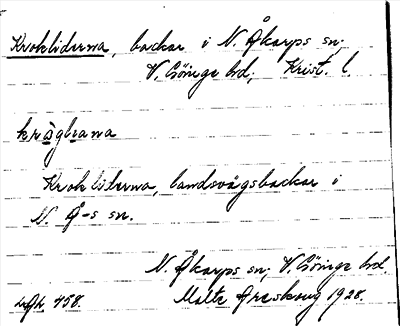 Krokliderna, backar i N. Åkarps sn.
V. Göinge hd, Krist. l.
Krokliderna, landsvägsbackar i
N. Å-s sn.
N. Åkarps sn, V. Göinge hd.
458. Malte Areskoug 1928.